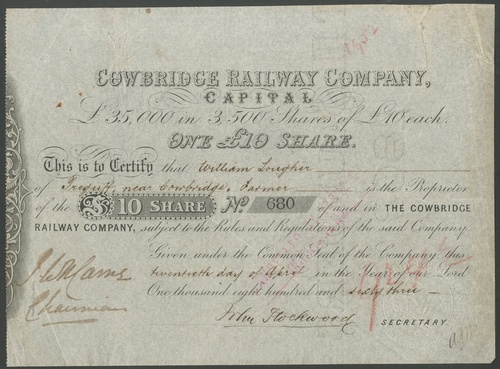 COWBRIDGE RAILWAY COMPANY,
CAPITAL
£35,000 in 3,500 Shares of £10 each.
ONE £10 SHARE.
This is to Certify that William Lougher
of near Cowbridge, Farmer is the Proprietor
of the £10 SHARE No. 680 of and in THE COWBRIDGE
RAILWAY COMPANY, subject to the Rules and Regulations of the said Company
Given under the Common Seal of the Company this
twentieth day of April in the Year of our Lord
One thousand eight hundred and sixty three
Chairman
John Stockwood
SECRETARY.